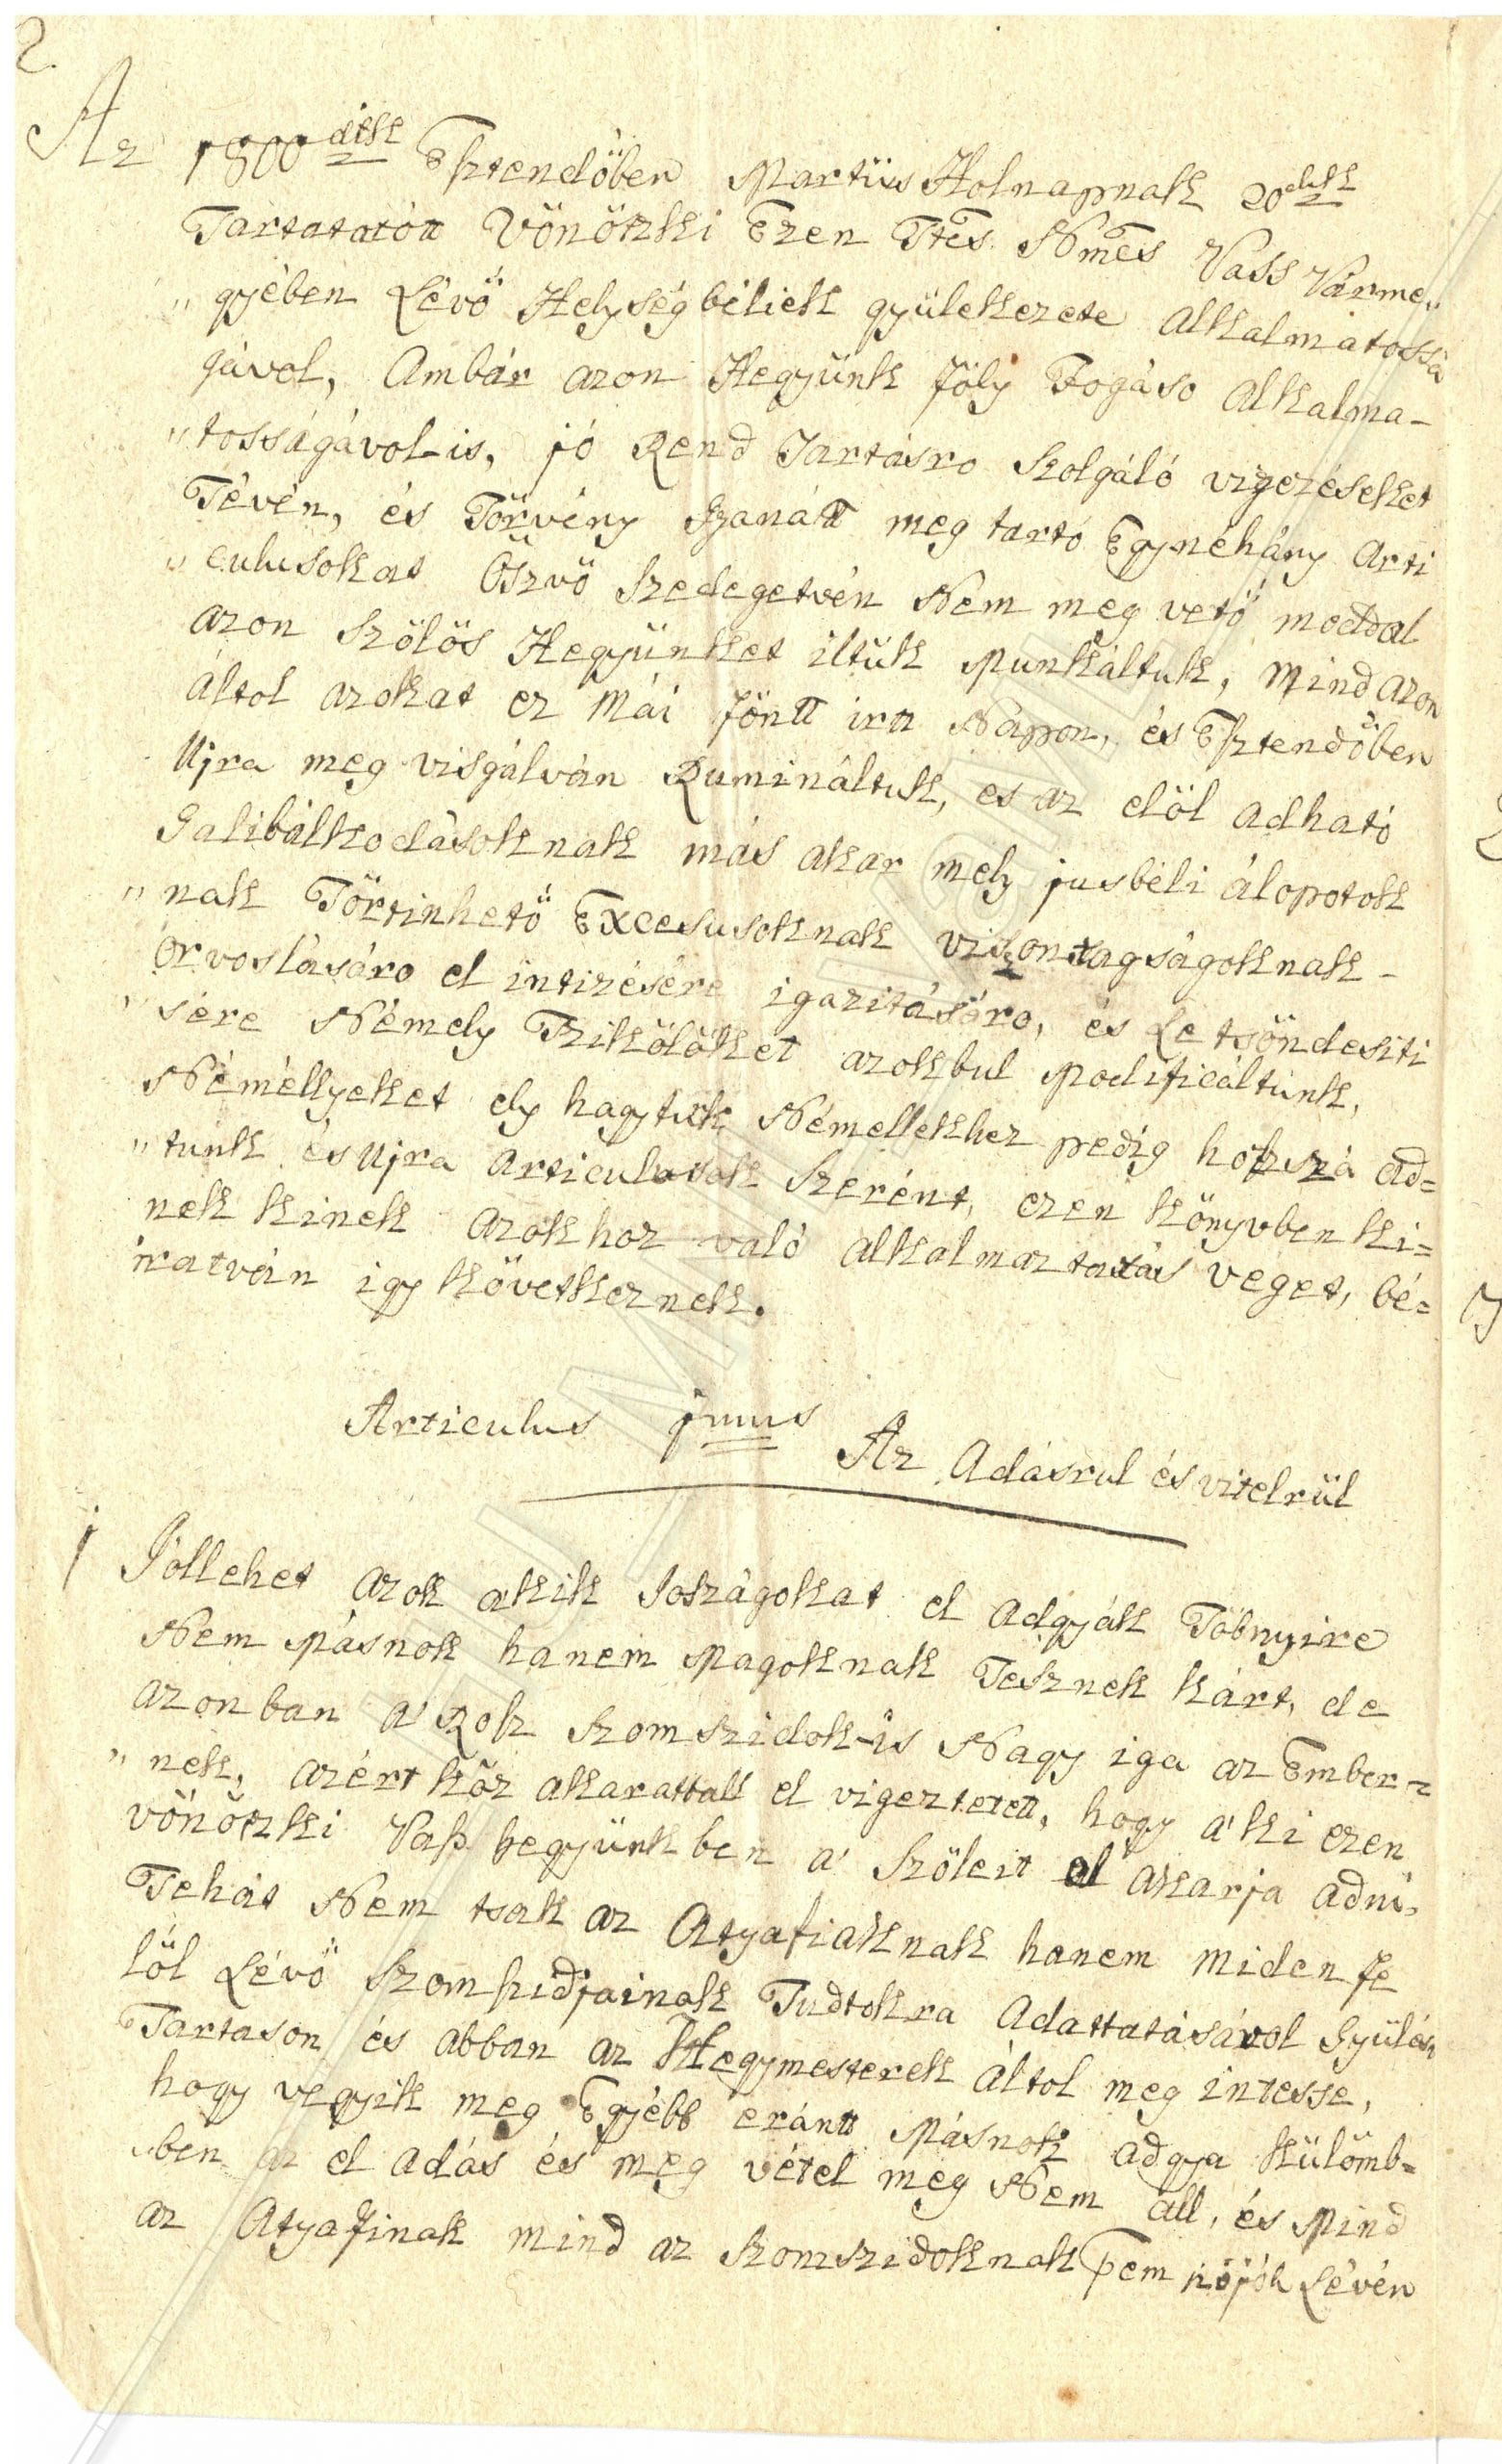 2.
Az 1800dikk Esztendőben Martius Holnapnak 20dikk
Tartatatott Vönötzki Ezen Ttes Nmes Vass Várme„
„gyében Lévő Helységbéliek gyülekezete alkalmatossá
gával, Ambár azon Hegyünk föly Fogáso alkalma-
„tosságával-is, jó Rend Tartásro Szolgáló vigezéseket
Tévén, és Törvény gyanántt meg tartó Egynéhány Arti
„culusokat Öszvö Szedegetvén Nem meg vető moddal
azon Szölös Hegyünket iltük Munkáltuk, Mind azon
áltol azokat ez Mái föntt irtt Napon, és Esztendőben
Ujra meg visgálván Rumináltuk, es az elöl adható
Galibálkodásoknak más akar mely jusbéli álopotok
„nak Törtinhető Excesusoknak viszontagságoknak-
orvoslásáro el intizésére igazitásáro, és Le tsöndesiti
„sére Némely Tzikölöket azokbul Modificáltunk,
Néméllyeket ely hagytuk Némellekhez pedig hozzá ad=
„tunk és Ujra Articulusok Szerént, ezen Könyvben ki=
nek kinek azokhoz való alkalmaztatás veget, bé=
iratván igy következnek.
Articulus jmus Az Adásrul és vitelrül
j Jollehet azok akik Joszágokat el adgyák Töbnyire
Nem Másnok hanem Magoknak Tesznek kárt, de
azonban a' Rosz Szomszidok-is Nagy iga az Ember=
„nek, azért köz akarattall el vigeztetett, hogy a' ki ezen
vönötzki Vass hegyünkben a' Szöleit el akarja adni,
Tehát Nem tsak az Atyafiaknak hanem miden fe
löl Lévő Szomszidjainak Tudtokra Adattatásával Gyülés
Tartason és abban az Hegymesterek áltol meg intesse,
hogy vegyik meg Egyébb eránt Másnok adgya külömb=
„ben az el adás és meg vétel meg Nem áll, és Mind
az Atyafinak mind az Szomszidoknak Lévén